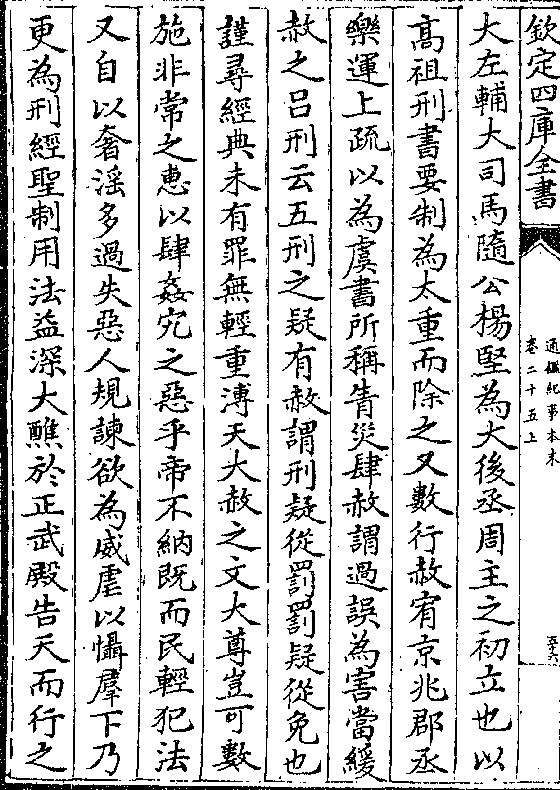 欽定四庫全書
通鑑紀事本末
卷二十五上
五十六
大左輔大司馬隨公楊堅為大後丞周主之初立也以
高祖刑書要制為太重而除之又數行赦宥京兆郡丞
樂運上疏以為虞書所稱眚災肆赦謂過誤為害當緩
赦之吕刑云五刑之疑有赦謂刑疑從罰罰疑從免也
謹尋經典未有罪無輕重溥天大赦之文大尊豈可數
施非常之惠以肆姦宄之惡乎帝不納既而民輕犯法
又自以奢淫多過失惡人規諫欲為威虐以懾羣下乃
更為刑經聖制用法益深大醮於正武殿告天而行之